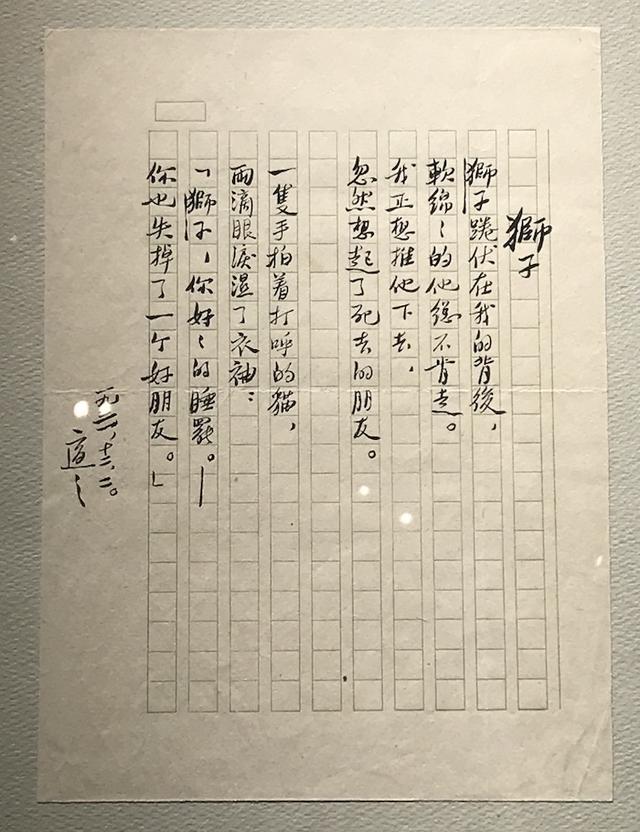 獅子
獅子踡伏在我的背後，
軟綿々的他總不肯走。
我正想推他下去，
忽然想起了死去的朋友。
一隻手拍着打呼的貓，
兩滴眼淚濕了衣袖：
「獅子，你好々的睡罷。—
你也失掉了一个好朋友。」
一九三一，十二，二。
適之